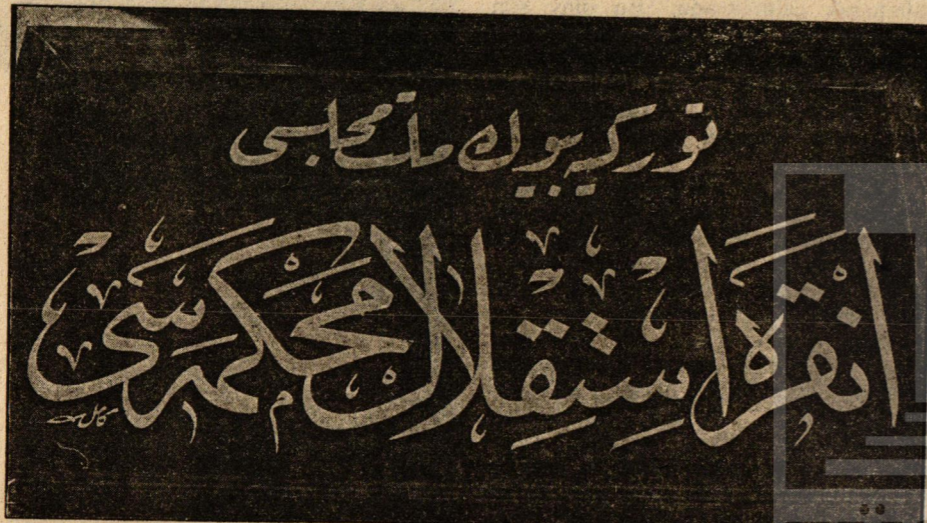 توركيه بيوك ملت مجلسى
انقره استقلال محكمه سى